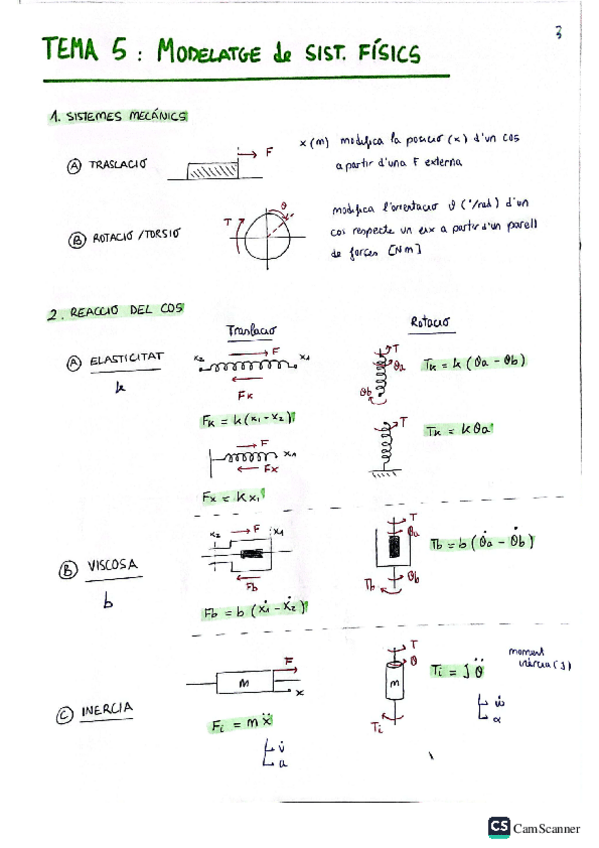 3
TEMA 5 : MODELATGE de SIST. FÍSICS
1. SISTEMES MECÁNICS
A TRASLACIÓ
F
x (m) modifica la posició (x) d'un cos
a partir d'una F externa
B ROTACIÓ / TORSIÓ
T
θ
modifica l'orientació θ (°/rad) d'un
cos respecte un eix a partir d'un parell
de forces [Nm]
2. REACCIÓ DEL COS
Traslació
Rotació
A ELASTICITAT
k
x2 F x1
Fk
Fk = k(x1 - x2)
T
θa
θb
Tk = k (θa - θb)
F
x1
Fx
Fx = k x1
T
Tk = k θa
B VISCOSA
b
x2 F x1
Fb
Fb = b (ẋ1 - ẋ2)
T
θa
θb
Tb
Tb = b (θ̇a - θ̇b)
C INERCIA
F
m
x
Fi = m ẍ
v̇
a
T
θ
m
Ti
Ti = J θ̈
ẇ
α
moment
inèrcia (J)
CS CamScanner